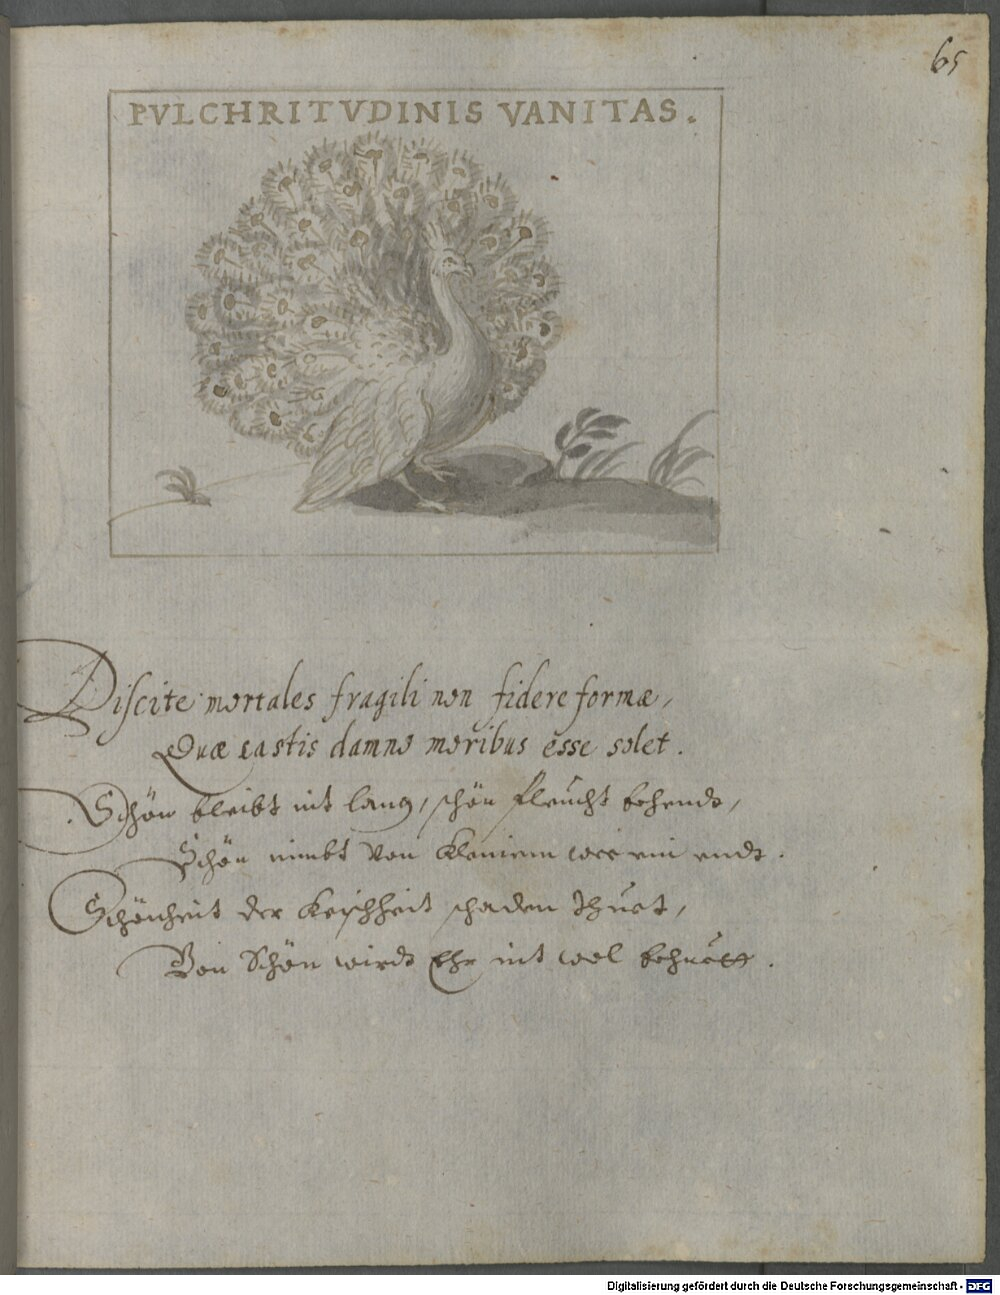 65
PVLCHRITVDINIS VANITAS.
Discite mortales fragili non fidere formæ,
Quæ castis damno moribus esse solet.
Schön bleibt nit lang, schön fleucht behende,
Schön nimbt von kleinem wee ein endt.
Schönheit der Keüschheit schaden thuet,
Bon Schön wirdt Ehr nit wol behuett.
Digitalisierung gefördert durch die Deutsche Forschungsgemeinschaft - DFG